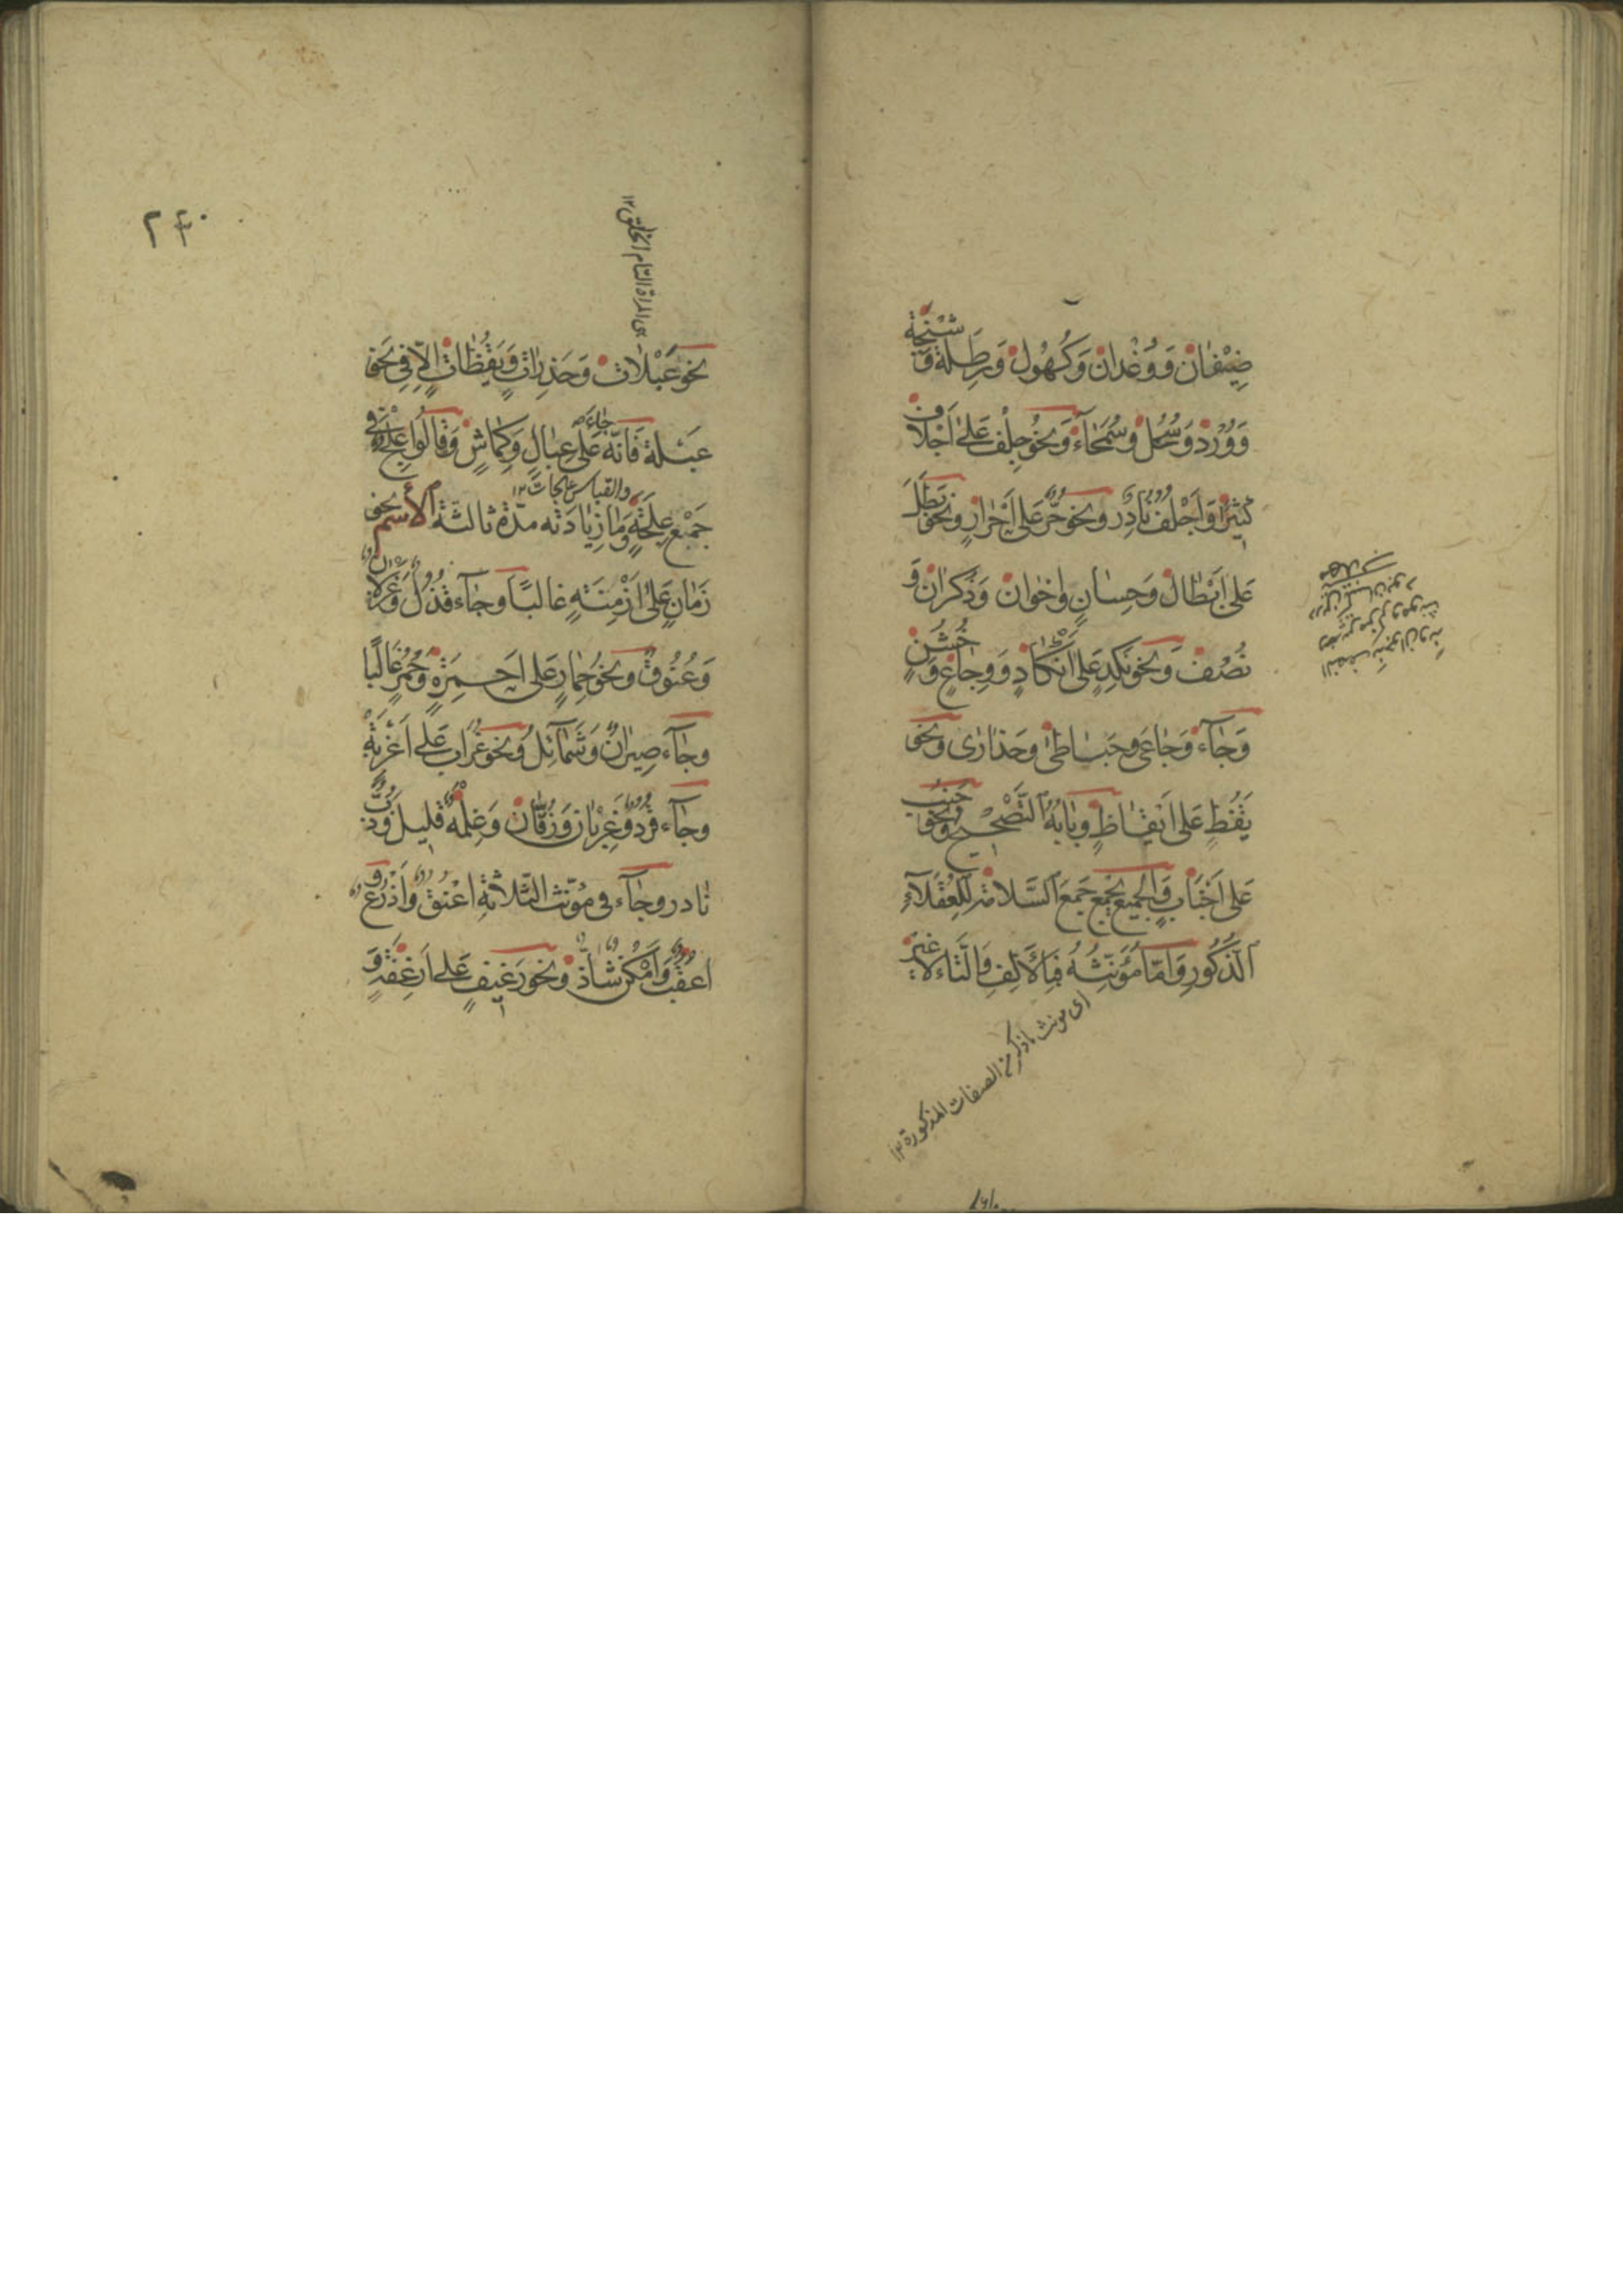 ضِيْفَان وَوُغْدَان وَكُهُول وَرِطَلة وَشيخة
وَوُرْد وَسُحُل وَسُمَحَآء وَنحْو جِلْف عَلى اَجْلاف
كثيرًا وَاَجْلُف نادِر ونحو حُرّ عَلى اَحْرَارٍ ونحو بَطَل
عَلى اَبْطَال وَحِسَانٍ وَاخْوان وَذُكْرَان وَ
نُصُف وَنحو نَكِدٍ عَلى اَنْكَادٍ وَوِجَاعٍ وَخُشُنٍ
وَجَآء وَجَاعَى وحَبَاطى وحَذَارٰى ونحو
يَقُظٍ عَلى اَيْقَاظٍ وبَابُهُ التَّصْحِيْح ونحو جُنُب
عَلى اَجْنَابٍ وَالجميع يُجمع جَمعَ السَّلامة لِلْعُقَلَآءِ
الذُّكُورِ وَامّا مُؤَنَّثُهُ فَبِالْاَلِفِ وَالتَّاء لا غَيْر
اى مونث ما ذكر من الصفات المذكورة ١٢
٢٤٠
اى المراة التام الخلق ١٢
نحو عَبْلَات وَحَذِرَات وَيَقُظَات اِلّا فِى نَحو
عَبْلة فَانّه جاء عَلى عِبَالٍ وَكِمَاشٍ وَقالُوا عِلَج فى
والقياس علجات ١٢
جَمْع عِلْجَةٍ وَمَا زِيَادَته مدّة ثالثة الاسْم نحو
زَمَانٍ عَلى اَزْمِنَةٍ غالبًا وجَآء قُذُل وَغِزْلان
وَعُنُوق ونحو حِمَارٍ عَلى اَحْمِرَة وَحُمُرٍ غَالبًا
وجَآء صِيرَان وَشَمَآئِل ونحو غُرَاب عَلى اَغْرِبَةٍ
وجَآء قُرُد وغِرْبَان وَزُقّان وَغِلْمَة قليل وَذُبّ
نادر وجَآء فى مُؤنّث الثّلاثَةِ اَعْنُق وَاَذْرُع وَ
اَعْقُب وَاَمْكُن شاذّ ونحو رَغِيفٍ عَلى اَرْغِفَةٍ وَ